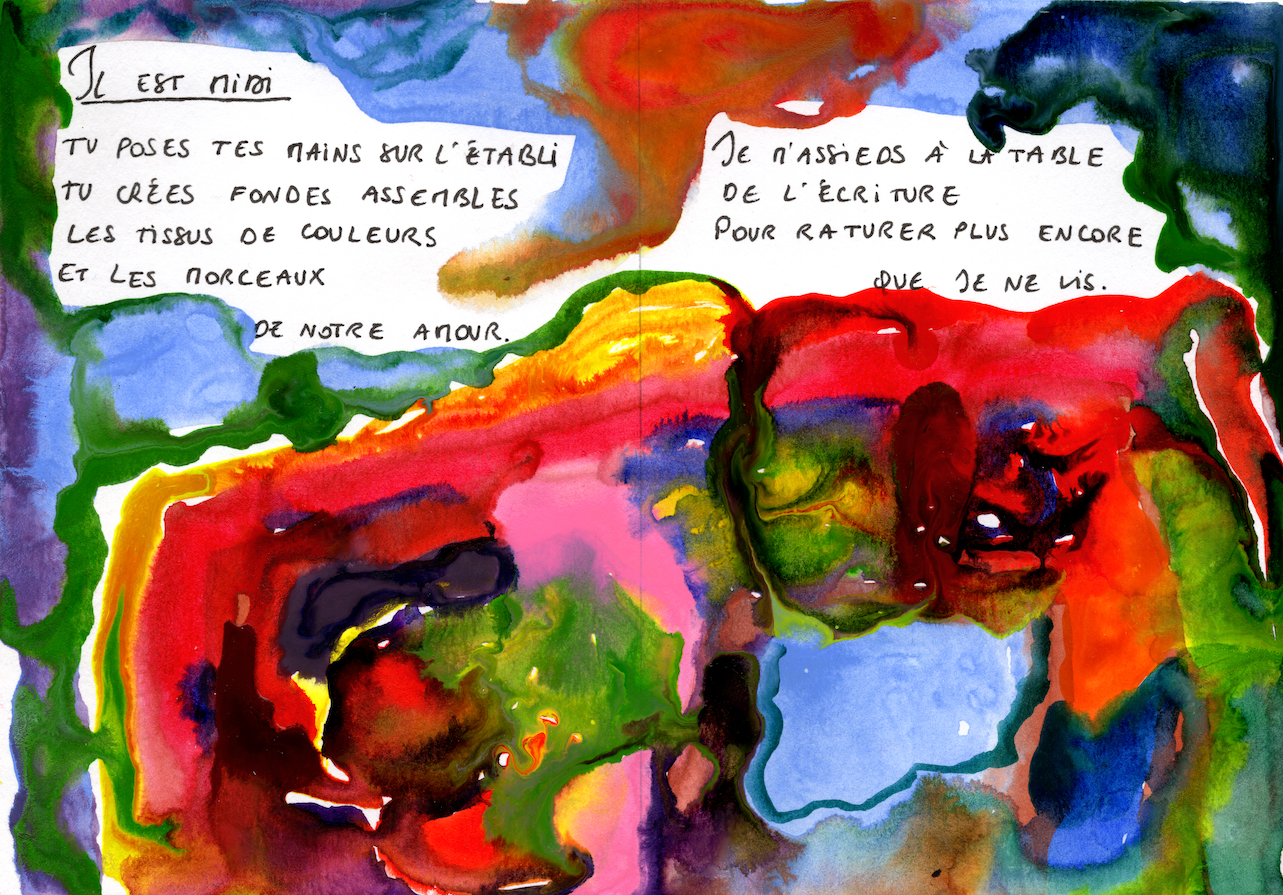 Il est midi
Tu poses tes mains sur l'établi
Tu crées fondes assembles
Les tissus de couleurs
Et les morceaux
de notre amour.
Je m'assieds à la table
de l'écriture
Pour raturer plus encore
que je ne vis.